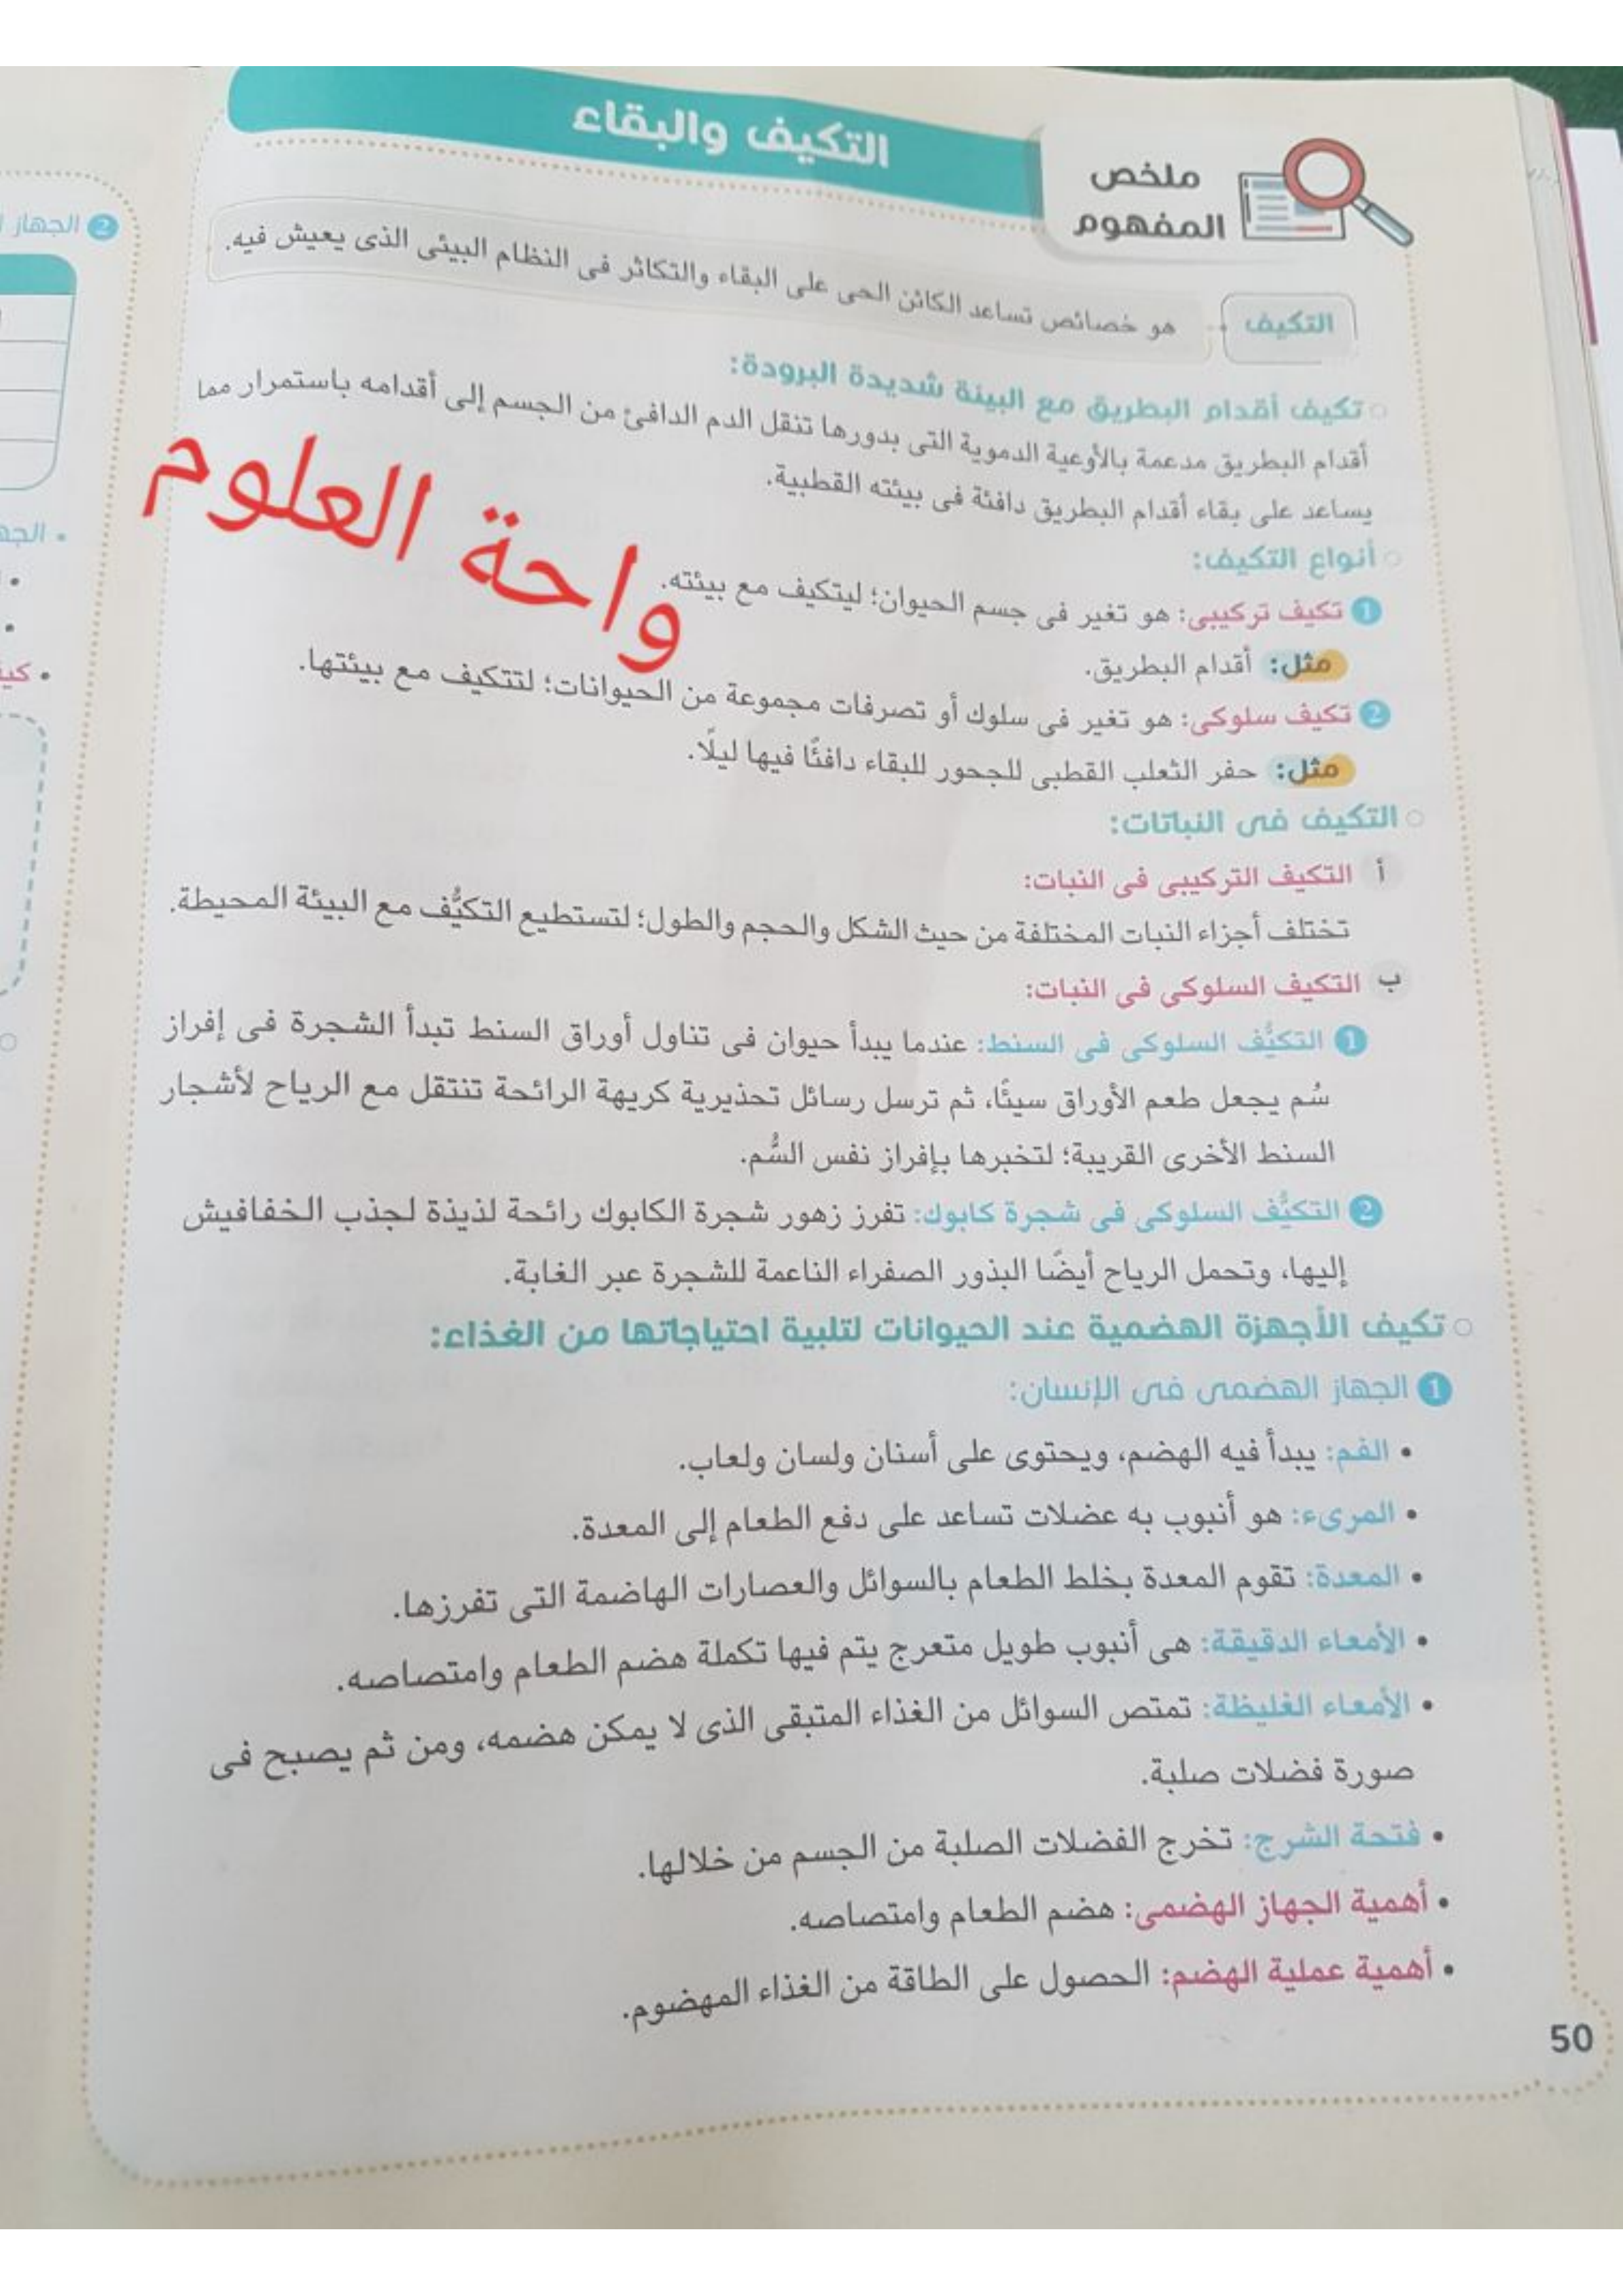 التكيف والبقاء
ملخص
المفهوم
التكيف
هو خصائص تساعد الكائن الحى على البقاء والتكاثر فى النظام البيئى الذى يعيش فيه.
تكيف أقدام البطريق مع البيئة شديدة البرودة:
أقدام البطريق مدعمة بالأوعية الدموية التى بدورها تنقل الدم الدافئ من الجسم إلى أقدامه باستمرار مما
يساعد على بقاء أقدام البطريق دافئة فى بيئته القطبية.
واحة العلوم
أنواع التكيف:
1 تكيف تركيبى: هو تغير فى جسم الحيوان؛ ليتكيف مع بيئته.
مثل: أقدام البطريق.
2 تكيف سلوكى: هو تغير فى سلوك أو تصرفات مجموعة من الحيوانات؛ لتتكيف مع بيئتها.
مثل: حفر الثعلب القطبى للجحور للبقاء دافئًا فيها ليلًا.
التكيف فى النباتات:
أ التكيف التركيبى فى النبات:
تختلف أجزاء النبات المختلفة من حيث الشكل والحجم والطول؛ لتستطيع التكيُّف مع البيئة المحيطة.
ب التكيف السلوكى فى النبات:
1 التكيُّف السلوكى فى السنط: عندما يبدأ حيوان فى تناول أوراق السنط تبدأ الشجرة فى إفراز
سُم يجعل طعم الأوراق سيئًا، ثم ترسل رسائل تحذيرية كريهة الرائحة تنتقل مع الرياح لأشجار
السنط الأخرى القريبة؛ لتخبرها بإفراز نفس السُّم.
2 التكيُّف السلوكى فى شجرة كابوك: تفرز زهور شجرة الكابوك رائحة لذيذة لجذب الخفافيش
إليها، وتحمل الرياح أيضًا البذور الصفراء الناعمة للشجرة عبر الغابة.
تكيف الأجهزة الهضمية عند الحيوانات لتلبية احتياجاتها من الغذاء:
1 الجهاز الهضمى فى الإنسان:
• الفم: يبدأ فيه الهضم، ويحتوى على أسنان ولسان ولعاب.
• المرىء: هو أنبوب به عضلات تساعد على دفع الطعام إلى المعدة.
• المعدة: تقوم المعدة بخلط الطعام بالسوائل والعصارات الهاضمة التى تفرزها.
• الأمعاء الدقيقة: هى أنبوب طويل متعرج يتم فيها تكملة هضم الطعام وامتصاصه.
• الأمعاء الغليظة: تمتص السوائل من الغذاء المتبقى الذى لا يمكن هضمه، ومن ثم يصبح فى
صورة فضلات صلبة.
• فتحة الشرج: تخرج الفضلات الصلبة من الجسم من خلالها.
• أهمية الجهاز الهضمى: هضم الطعام وامتصاصه.
• أهمية عملية الهضم: الحصول على الطاقة من الغذاء المهضوم.
50
2 الجهاز